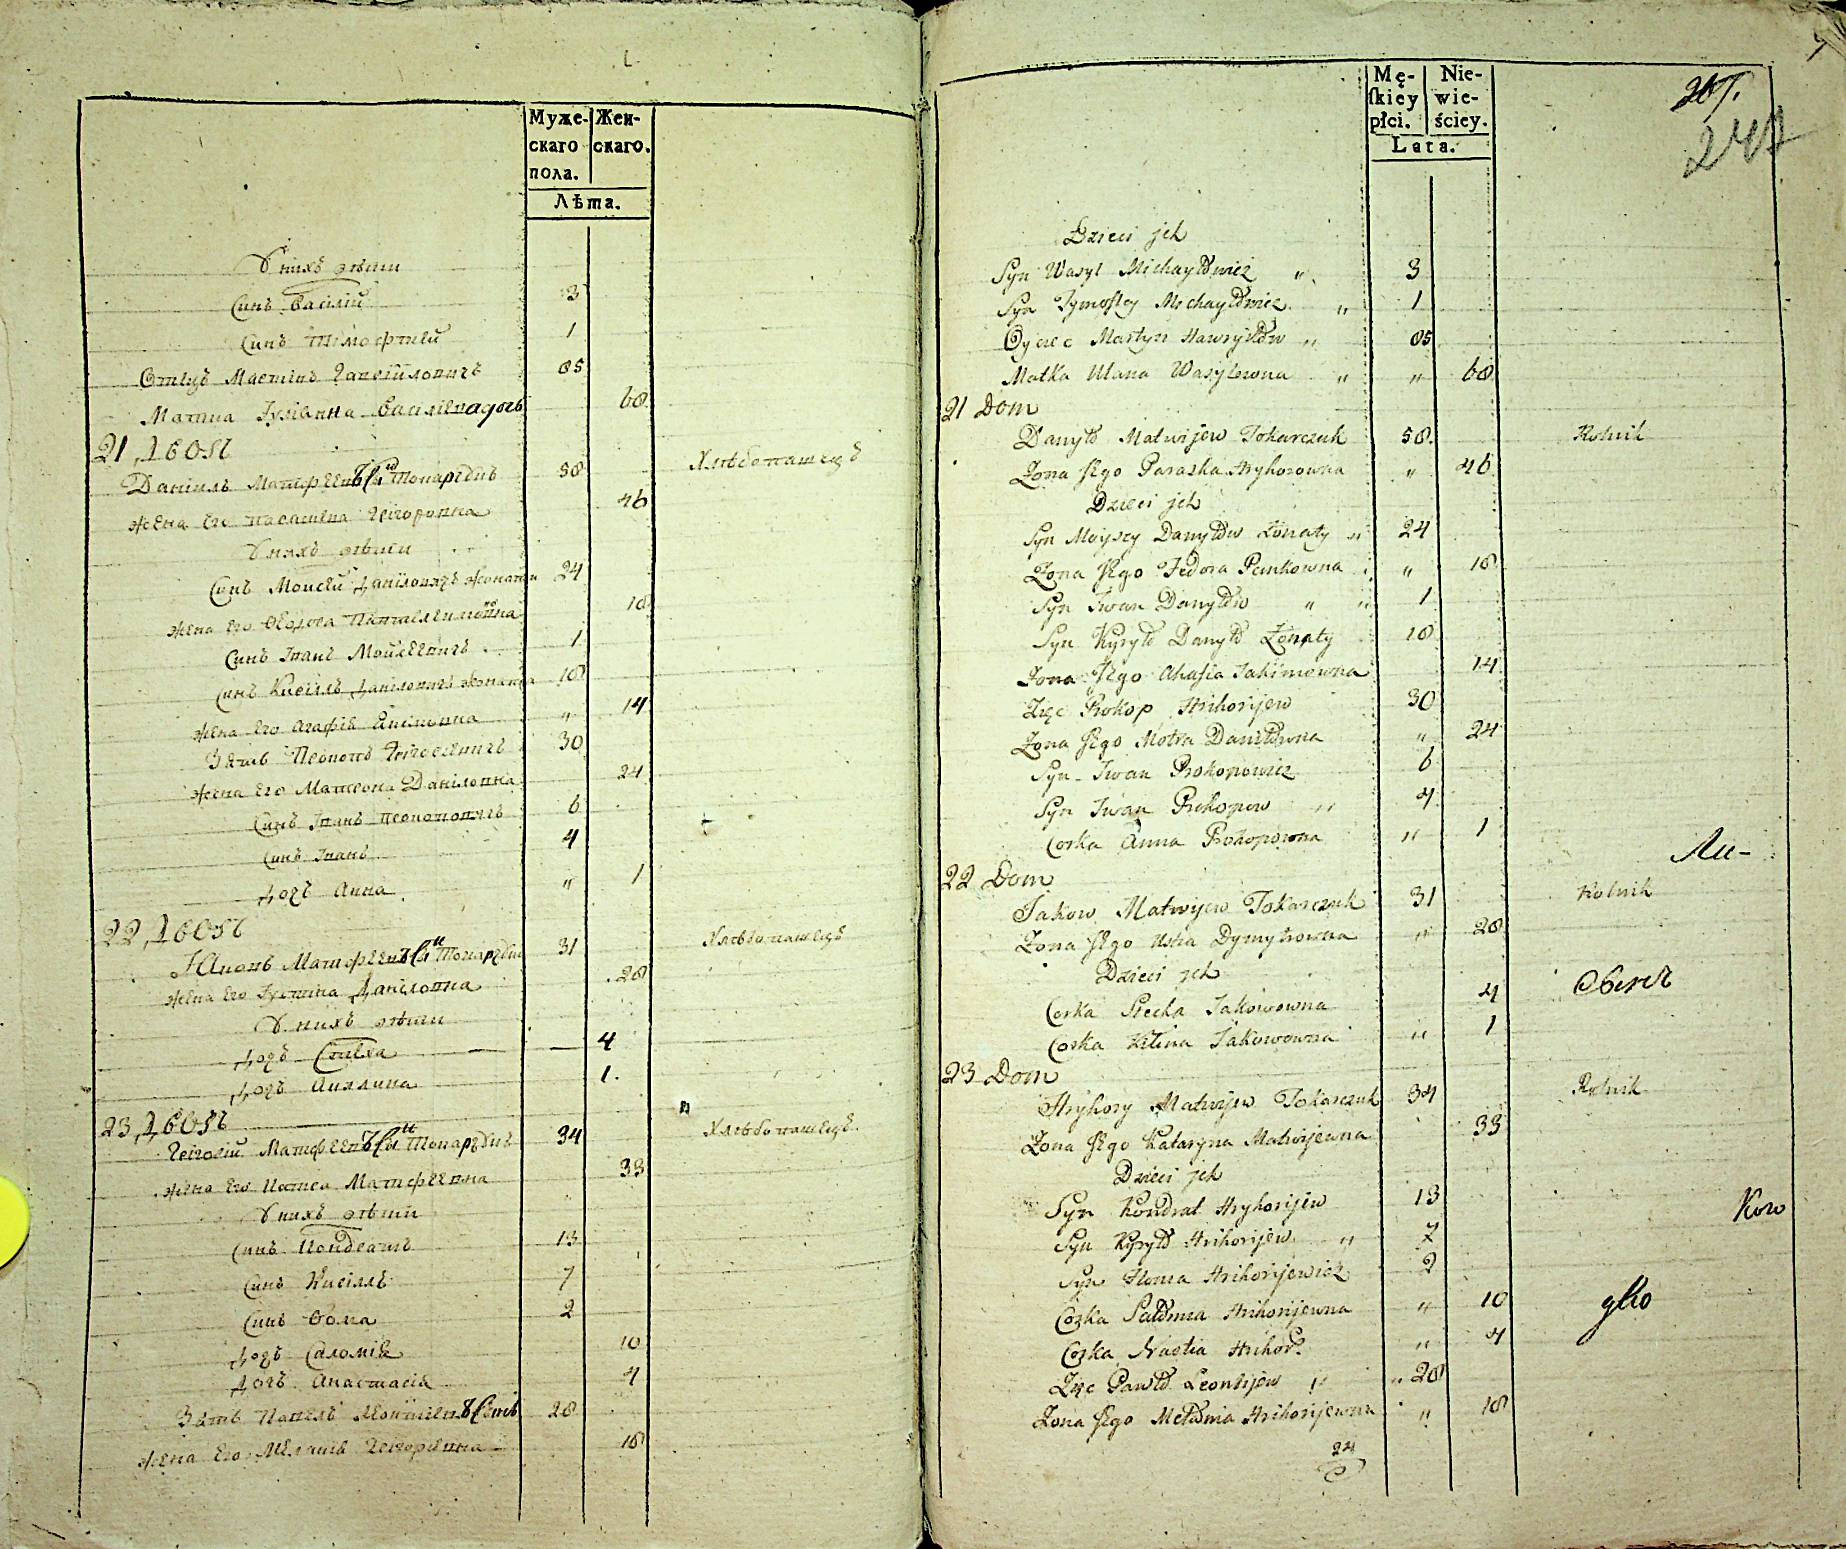 Муже-
скаго
пола.
Жен-
скаго.
Лѣта.
У нихъ дѣти
Синъ Василій 3
Синъ Тимофтей 1
Отецъ Мартинъ Гавріиловичъ 85
Матка Іуліанна Василіева дочь 68
21, Дворъ
Даніилъ Матфеевъ Синъ Токарчукъ 58 Хлѣбопашецъ
Жена Его Параскева Григоровна 46
У нихъ дѣти
Синъ Моисей Даніловичъ жонатий 24
Жена Его Феодора Пантелеимоновна 18
Синъ Іванъ Мойсеевичъ 1
Синъ Кирілъ Даніловичъ жонатий 18
Жена Его Агафія Якимовна " 14
Зять Прокопъ Григоріевичъ 30
Жена Его Матрона Даніловна 24
Синъ Іванъ Прокоповичъ 6
Синъ Іванъ 4
Дочь Анна " 1
22, Дворъ
Яковъ Матфеевъ Синъ Токарчукъ 31 Хлѣбопашецъ
Жена Его Іустина Даніловна 28
У нихъ дѣти
Дочь Стеха 4
Дочь Акилина 1.
23, Дворъ
Григорій Матфеевъ Синъ Токарчукъ 34 Хлѣбопашецъ.
Жена Его Матфеевна 33
У нихъ дѣти
Синъ Кондратъ 13
Синъ Кирілъ 7
Синъ Фома 2
Дочь Саломія 10
Дочь Анастасія 4
Зять Павелъ Леонтіевъ Синъ 28
Жена Его Меланія Григоріевна 18
Mę-
ſkiey
płci.
Nie-
wie-
ściey.
Lata.
247
Dzieci jch
Syn Wasyl Michayłowicz " 3
Syn Tymoftey Michayłowicz " 1
Oyciec Martyn Hawryłow " 85
Matka Ulana Wasylewna " " 68
21 Dom
Danyło Matwijew Tokarczuk 58. Rolnik
Żona Jego Paraska Hryhorowna " 46
Dzieci jch
Syn Moyszy Danyłow Żonaty " 24
Żona Jego Fedora Pankowna " 18
Syn Iwan Danyłow " " 1
Syn Kyryło Danył Żonaty 18
Żona Jego Ahafia Jakimowna 14
Zięc Prokop Hrihorijew 30
Żona Jego Motra Daniłowna " 24
Syn Iwan Prokopowicz 6
Syn Iwan Prokopow " 4
Corka Anna Prokopowna " 1
Ли-
22 Dom
Jakow Matwijew Tokarczuk 31 Rolnik
Żona Jego Ustia Dymytrowna " 28
Dzieci jch
Corka Stecha Jakowowna 4
Corka Kilina Jakowowna " 1
23 Dom
Hryhory Matwijew Tokarczuk 34 Rolnik
Żona Jego Kataryna Matwijewna 33
Dzieci jch
Syn Kondrat Hryhorijew 13
Syn Kyryło Hrihorijew " 7
Syn Homa Hrihorijewicz 2
Corka Sałomia Hrihorijewna " 10
Corka Nastia Hrihor. " 4
Zięc Pawło Leontijew " " 28
Żona Jego Mełania Hrihorijewna " 18
24